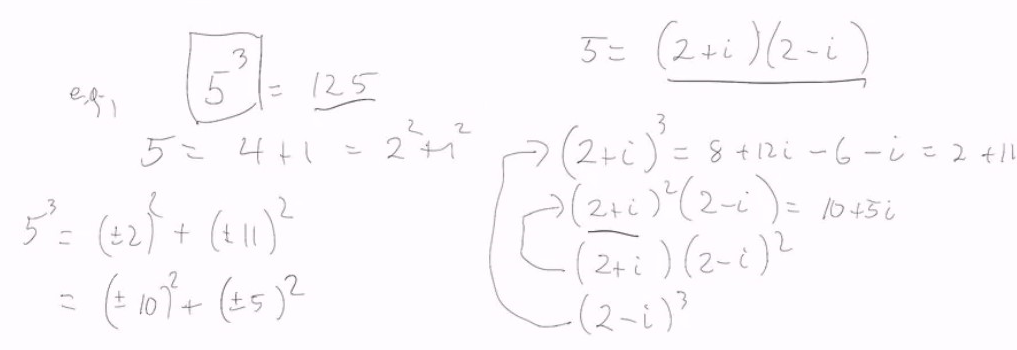 e.g., 5³ = 125
5 = 4 + 1 = 2² + 1²
5³ = (±2)² + (±11)²
= (±10)² + (±5)²
5 = (2+i)(2-i)
→ (2+i)³ = 8 + 12i - 6 - i = 2 + 11
→ (2+i)²(2-i) = 10+5i
(2+i)(2-i)²
(2-i)³